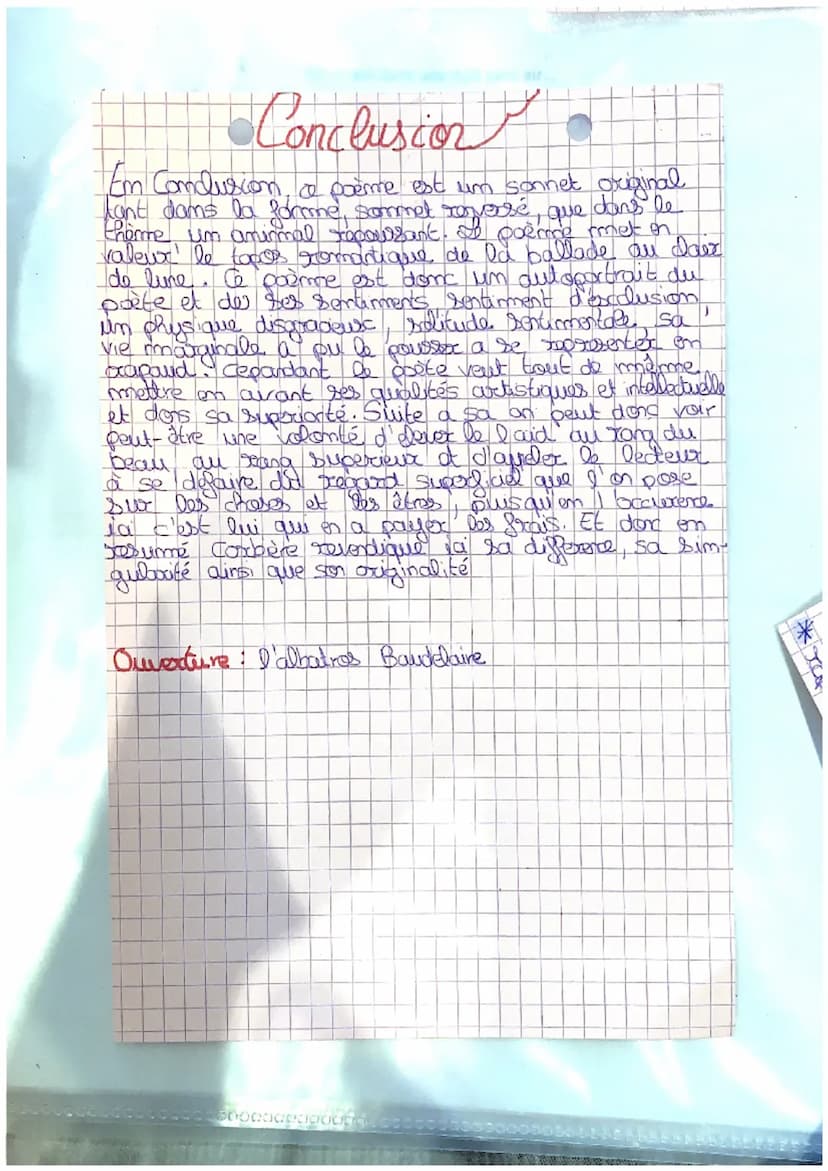 Conclusion
En Conclusion, ce poème est um sonnet original
tant dams la forme, sonnet renversé, que dans le
thème um amimal repoussant. Le poème met en
valeur le topos rommantique de la ballade au clair
de lune. Ce poème est donc um autoportrait du
poète et des ses sentiments, sentiment d'exclusion
um physique disgracieux, solitude sentimentale, sa
vie marginale a pu le pousser a se representer en
crapaud. Cepandant le poète veut tout de même
mettre en avant ses qualités artistiques et intellectuelle
et dors sa superiorté. Suite a sa on peut donc voir
peut-être une volonté d'élever le laid au rang du
beau, au rang superieur et d'appeler le lecteur
à se défaire du regard superficiel que l'on pose
sur les choses et les êtres, puisqu'en l'occurence
ici c'est lui qui en a payer les frais. Et donc en
resumé Corbière revendique ici sa difference, sa sim-
gularité ainsi que son originalité
Ouverture : l'albatros Baudelaire
*